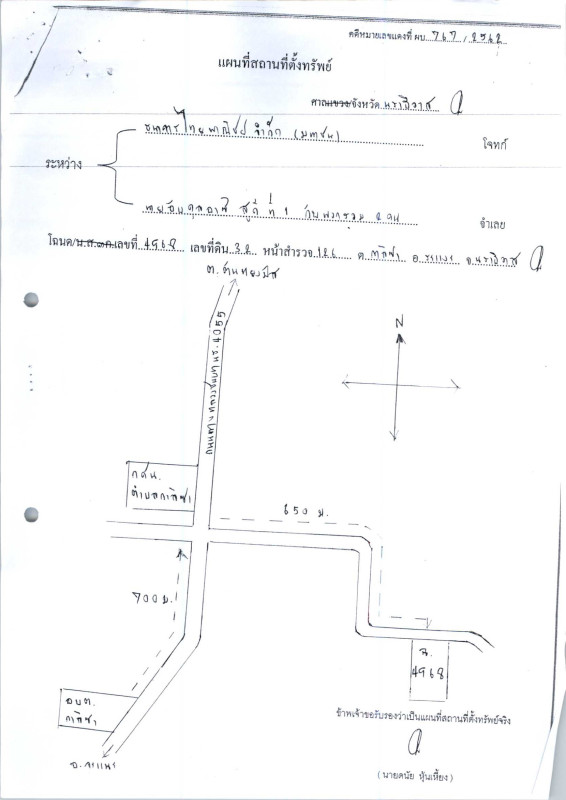 คดีหมายเลขแดงที่ ผบ. 767 / 2562
แผนที่สถานที่ตั้งทรัพย์
ศาลแขวง/จังหวัด นราธิวาส
ธนาคารไทยพาณิชย์ จำกัด (มหาชน)
โจทก์
ระหว่าง
ที่ 1 กับพวกรวม 2 คน
จำเลย
โฉนด/น.ส.๓ก.เลขที่ 4968 เลขที่ดิน 32 หน้าสำรวจ 126 ต. กาลิซา อ. ระแงะ จ. นราธิวาส
ต. ตันหยงมัส
N
ถนนทางหลวงชนบท นธ. 4055
กศน.
ตำบลกาลิซา
650 ม.
700 ม.
ฉ.
4968
อบต.
กาลิซา
ข้าพเจ้าขอรับรองว่าเป็นแผนที่สถานที่ตั้งทรัพย์จริง
อ. จะแนะ
(นายดนัย หุ้นเหี้ยง)